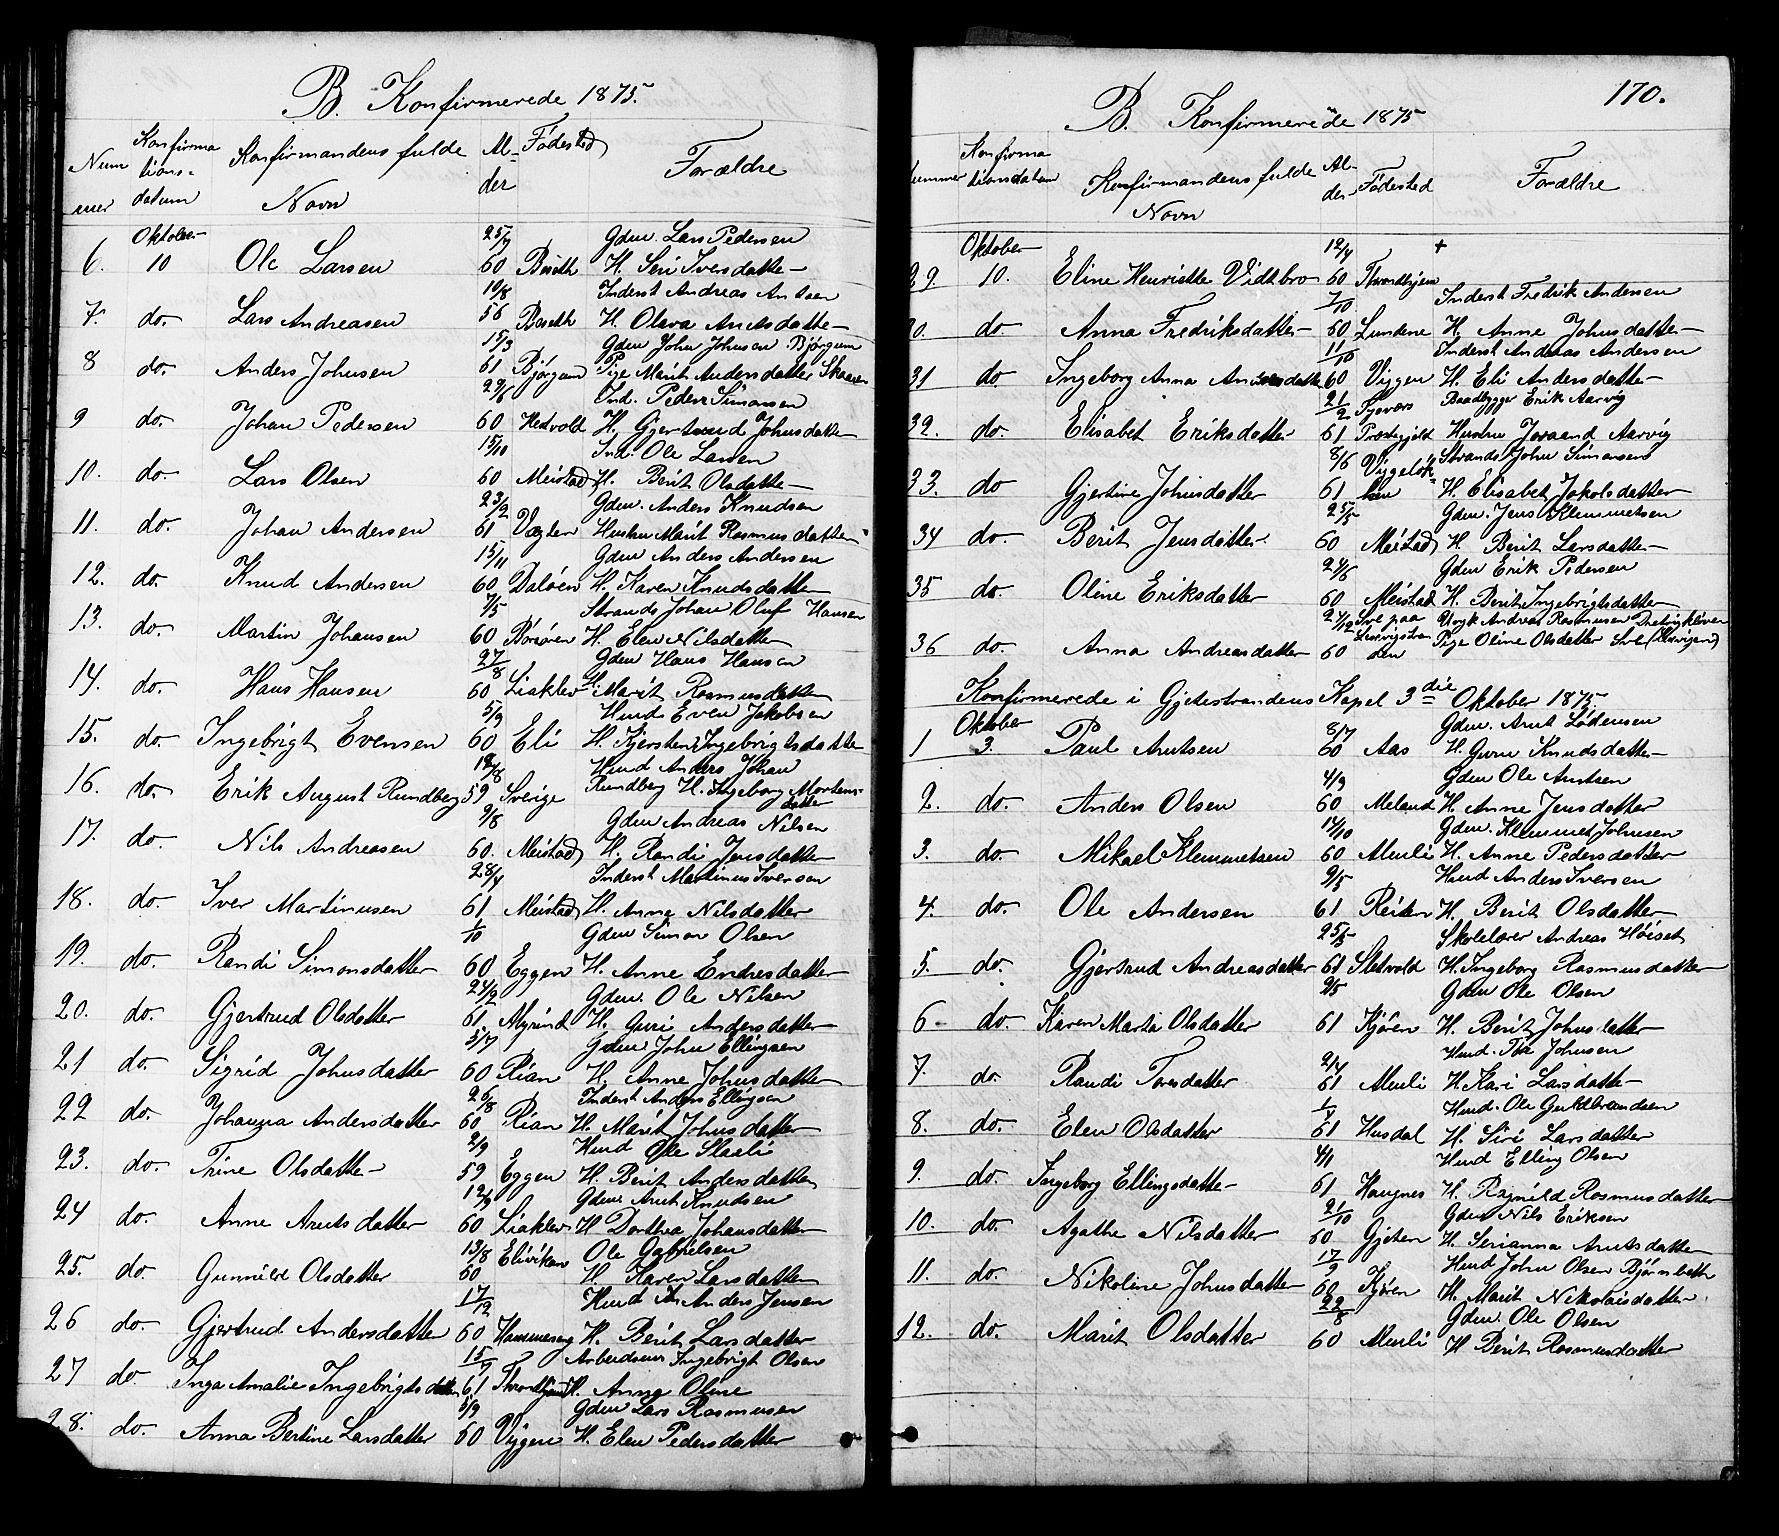 B. Konfirmerede 1875.
Nummer Konfirmationsdatum Konfirmandens fulde Navn Alder Fødested Forældre
Oktober 25/7 Gdm. Lars Pedersen
6. 10 Ole Larsen 60 Bæseth H. Siri Iversdatter
10/8 Inderst Andreas Antsen
7. do. Lars Andreasen 56 Bæseth H. Olava Arntsdatter
15/3 Gdm John Johnsen Bjørgum
8 do. Anders Johnsen 61 Bjørgum Pige Marit Andersdatter Skaaren
29/6 Ind. Peder Simonsen
9 do. Johan Pedersen 60 Hedvold H. Gjertrud Johnsdatter
15/10 Ind. Ole Larsen
10. do. Lars Olsen 60 Meistad H. Berit Olsdatter
23/2 Gdm. Anders Knudsen
11. do. Johan Andersen 61 Vægten Hustru Marit Rasmusdatter
15/11 Gdm Anders Andersen
12. do. Knud Andersen 60 Daløen H. Karen Knudsdatter
7/5 Strands. Johan Oluf Hansen
13. do. Martin Johansen 60 Borøren H. Elen Nilsdatter
27/8 Gdm Hans Hansen
14. do. Hans Hansen 60 Liaklev H. Marit Rasmusdatter
5/9 Hmd Even Jakobsen
15. do. Ingebrigt Evensen 60 Eli H. Kjersten Ingebrigtsdatter
18/8 Hmd Anders Johan
16. do. Erik August Rundberg 59 Sverige Rundberg H. Ingeborg Mortensdatter
9/8 Gdm Andreas Nilsen
17. do. Nils Andreasen 60. Meistad H. Randi Jensdatter
28/4 Inderst Martinus Iversen
18. do. Iver Martinusen 61 Meistad H. Anne Nilsdatter
1/10 Gdm Simon Olsen
19. do. Randi Simonsdatter 60 Eggen H. Anne Endresdatter
24/2 Gdm. Ole Nilsen
20. do. Gjertrud Olsdatter 61 Myrind H. Guri Andersdatter
5/7 Gdm John Ellingsen
21 do. Sigrid Johnsdatter 60 Rian H. Anne Johnsdatter
26/8 Inderst Anders Ellingsen
22 do. Johanna Andersdatter 60 Rian H. Marit Johnsdatter
2/9 Hmd Ole Slaali
23. do. Trine Olsdatter 59 Eggen H. Berit Andersdatter
Gdm. Arnt Knudsen
24 do. Anne Arntsdatter 60 Liaklev H Dorthea Johansdatter
13/8 Ole Gabrielsen
25. do. Gunnild Olsdatter 60 Eliviken H. Karen Larsdatter
17/12 Hmd Anders Jensen
26 do. Gjertrud Andersdatter 60 Hammeseng H. Berit Larsdatter
15/7 Arbeidsm Ingebrigt Olsen
27 do Inga Amalie Ingebrigtsdatter 61 Throndhjem H. Anna Oline
5/9 Gdm Lars Rasmussen
28. do. Anna Bertine Larsdatter 60 Viggen H. Elen Pedersdatter
170.
B. Konfirmerede 1875
Nummer Konfirmationsdatum Konfirmandens fulde Navn Alder Fødested Forældre
Oktober 12/4 +
29. 10. Eline Henriette Vidtbro 60 Throndhjem
7/10 Inderst Fredrik Andersen
30. do Anna Fredriksdatter 60 Lundene H. Anne Johnsdatter
11/10 Inderst Andreas Andersen
31 do Ingeborg Anna Andreasdatter 60 Viggen H. Eli Andersdatter
21/2 Baadbygger Erik Aarvig
32. do. Elisabet Eriksdatter 61 Præstegjeld Hustru Joraand Aarvig
8/6 Strands John Simonsen
33. do Gjertine Johnsdatter 61 H. Elisabet Jakobsdatter
25/5 Gdm. Jens Klemmetsen
34 do. Berit Jensdatter 60 Meistad H. Berit Larsdatter
24/6 Gdm Erik Pedersen
35 do. Oline Eriksdatter 60 Meistad H. Berit Ingebrigtsdatter
24/12 Andreas Rasmusen
36 do. Anna Andreasdatter 60 Pige Oline Olsdatter
Konfirmerede i Gjetestrandens Kapel 3die Oktober 1875.
Oktober 8/7 Gdm. Arnt Lødensen
1 3. Paul Arntsen 60 Aas H. Guru Knudsdatter
4/9 Gdm Ole Arntsen
2. do. Anders Olsen 60 Meland H. Anne Jensdatter
14/10 Gdm. Klemmet Johnsen
3. do. Mikael Klemmetsen 60 Muuli H. Anne Pedersdatter
9/5 Hmd Anders Iversen
4. do. Ole Andersen 61 Reiten H. Berit Olsdatter
25/5 Skolelærer Andreas Høiset
5. do. Gjertrud Andreasdatter 61 Sletvold H. Ingeborg Rasmusdatter
2/5 Gdm Ole Olsen
6 do. Karen Marta Olsdatter 61 Kjøren H. Berit Johnsdatter
2/4 Hmd. Tore Johnsen
7. do. Randi Toresdatter 61 Muuli H. Kari Larsdatter
Hmd. Ole Guldbrandsen
8. do. Elen Olsdatter 61 Husdal H. Siri Larsdatter
4/1 Hmd Elling Olsen
9. do. Ingeborg Ellingsdatter 61 Haugnes H. Ragnild Rasmusdatter
21/10 Gdm Nils Eriksen
10. do. Agathe Nilsdatter 60 Gjeten H. Serianna Arntsdatter
17/9 Hmd John Olsen Bjørnbeth
11. do. Nikoline Johnsdatter 60 Kjøren H. Marit Nikolaisdatter
22/8 Gdm. Ole Olsen
12. do. Marit Olsdatter 60 Muuli H Berit Rasmusdatter